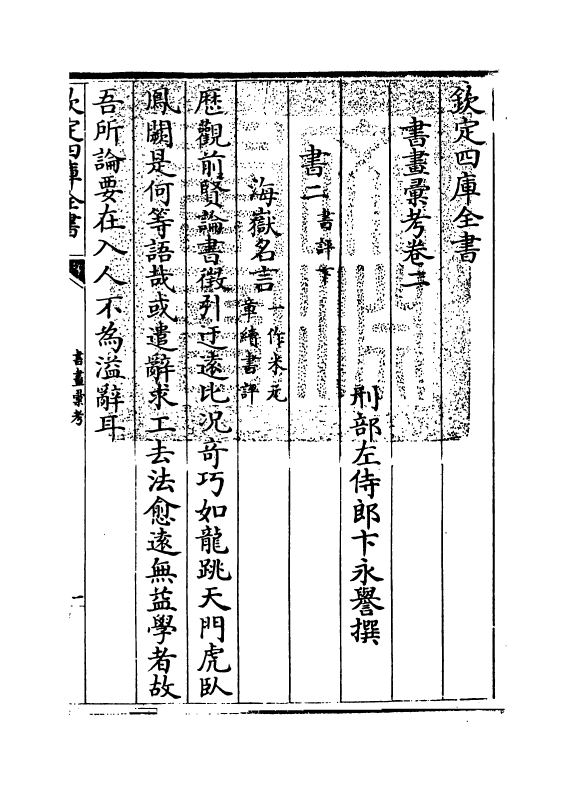 欽定四庫全書
書畫彙考卷二
刑部左侍郎卞永譽撰
書二書評等
海嶽名言一作米元章續書評
歷觀前賢論書徵引迂遠比况奇巧如龍跳天門虎臥
鳳闕是何等語哉或遣辭求工去法愈遠無益學者故
吾所論要在入人不為溢辭耳
欽定四庫全書
書畫彙考
一